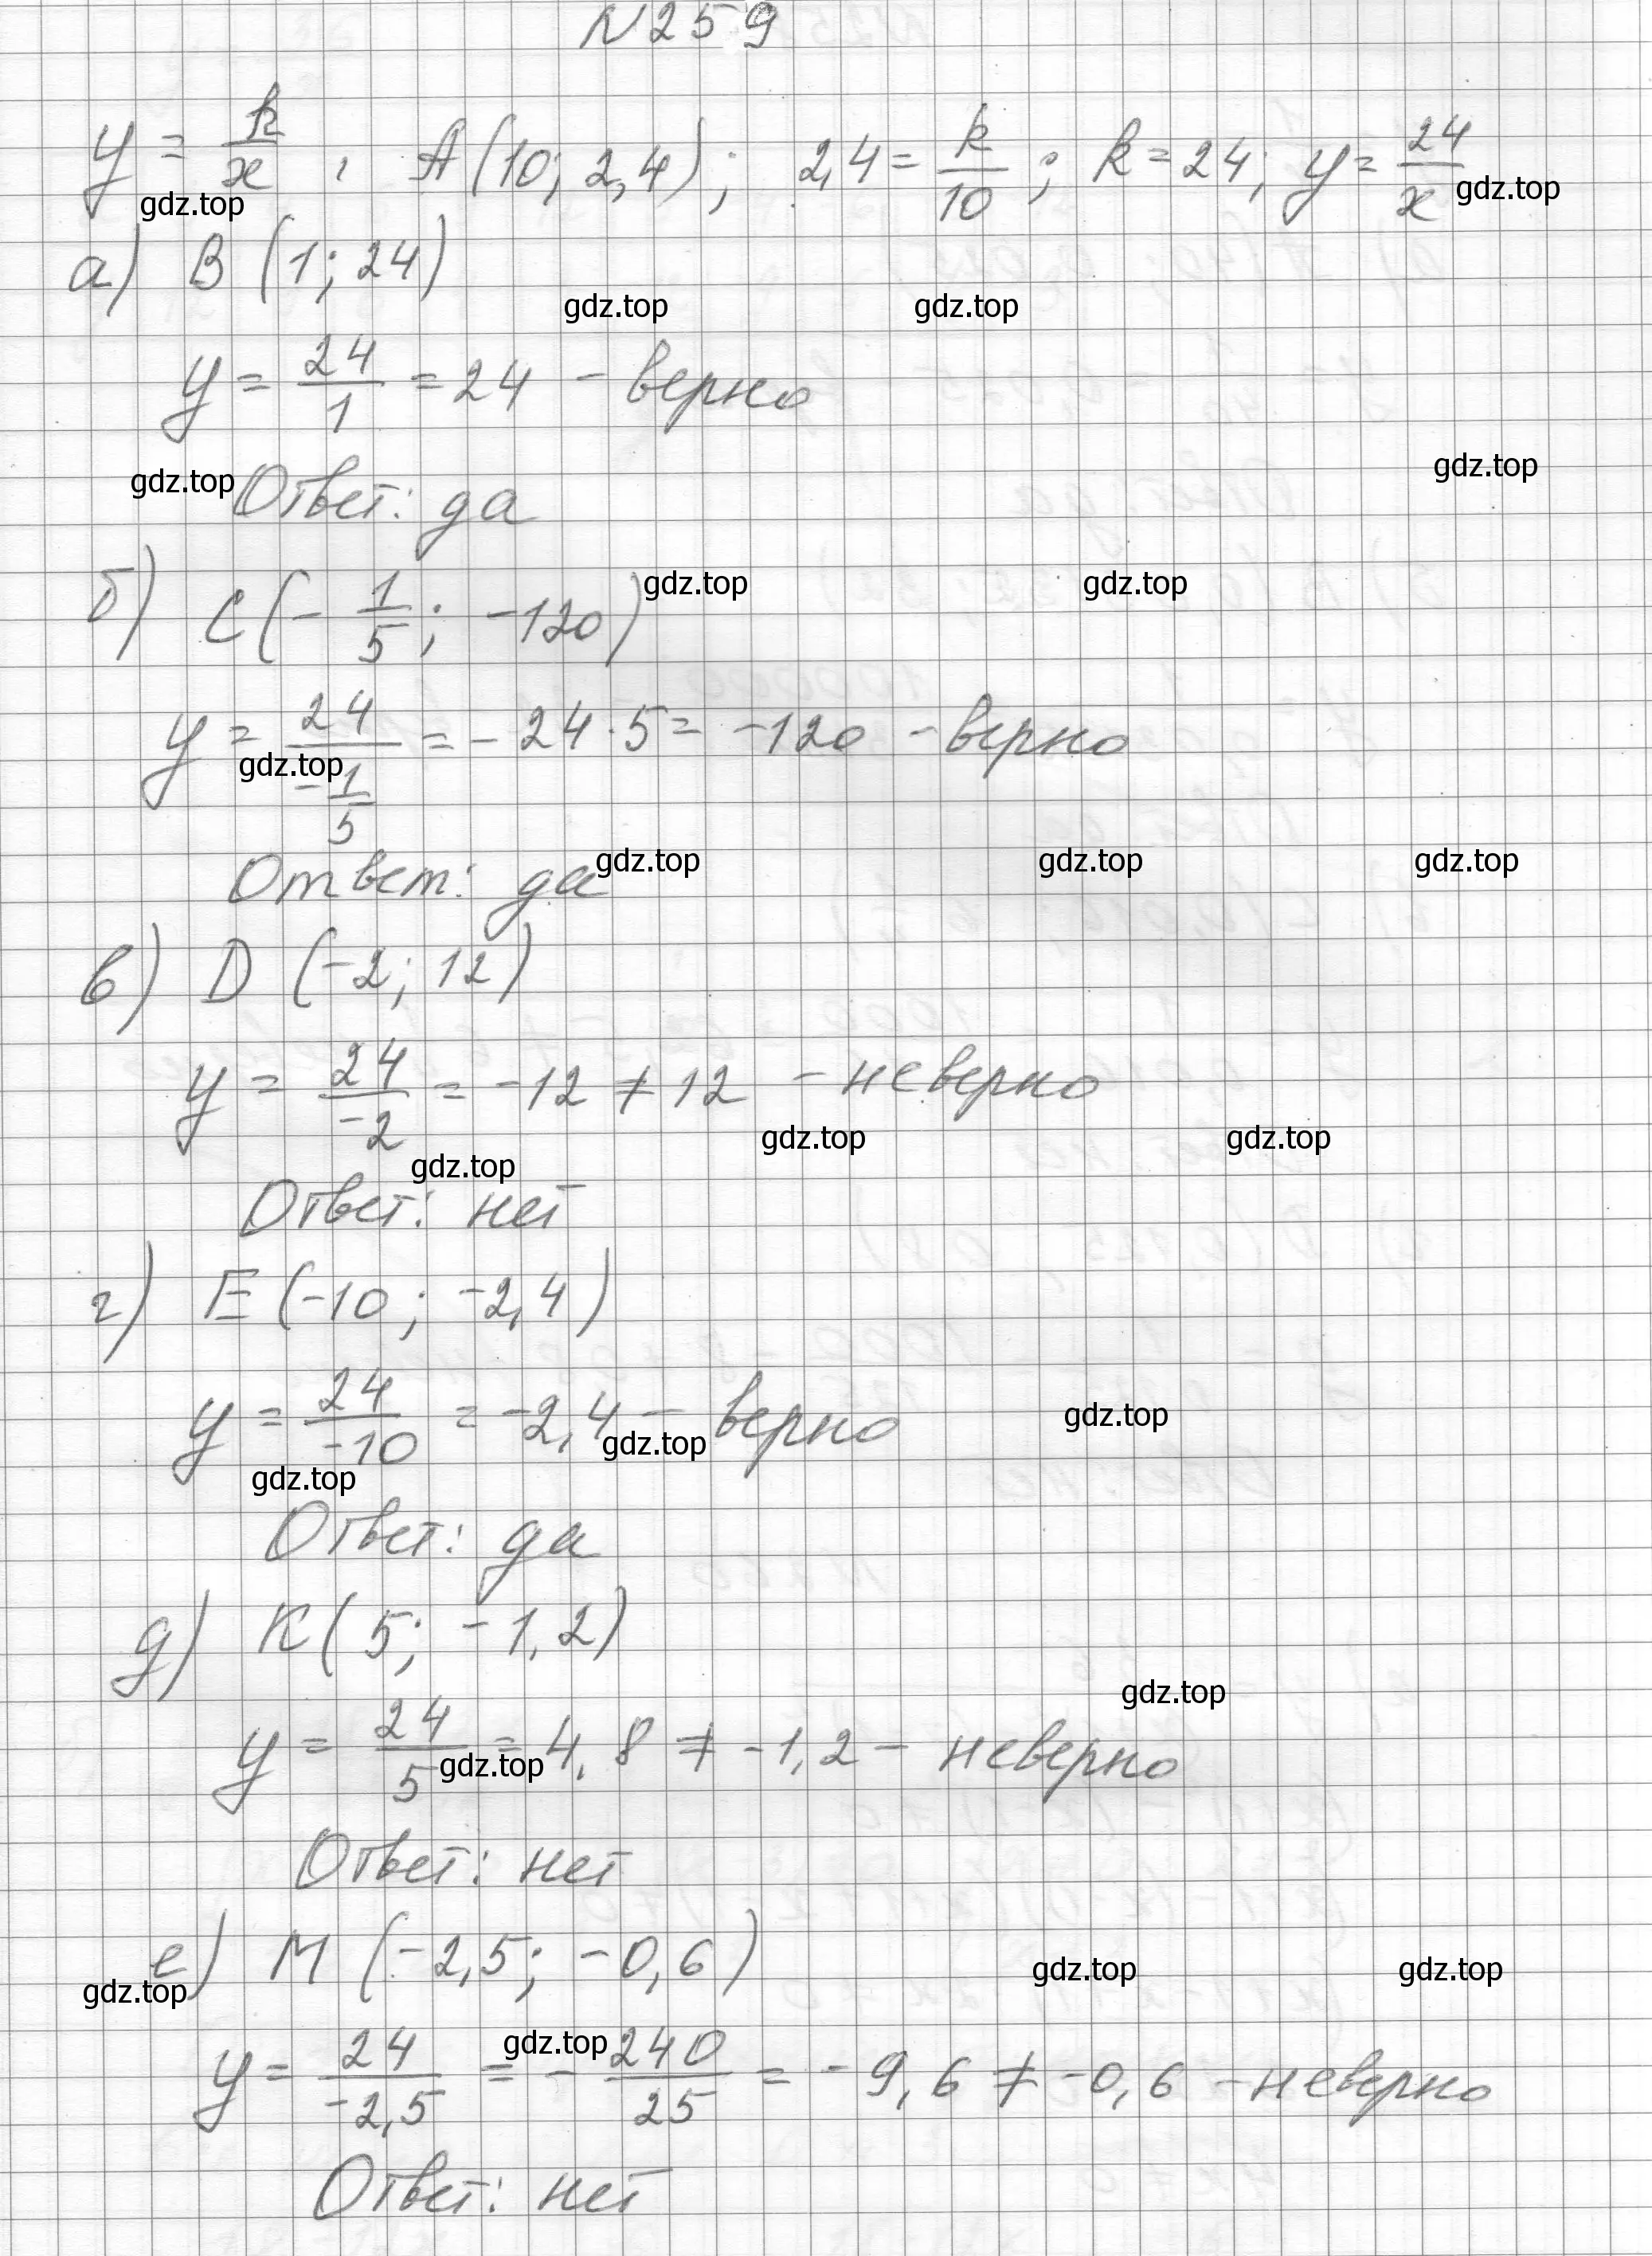 N 259
y = k/x , A(10; 2,4); 2,4 = k/10 ; k = 24; y = 24/x
gdz.top gdz.top
а) B (1; 24)
gdz.top gdz.top
y = 24/1 = 24 - верно
gdz.top Ответ: да gdz.top
б) C(-1/5; -120) gdz.top gdz.top
y = 24/(-1/5) = - 24 · 5 = -120 - верно
gdz.top
Ответ: да gdz.top gdz.top gdz.top
в) D (-2; 12)
y = 24/-2 = -12 ≠ 12 - неверно
gdz.top gdz.top gdz.top
Ответ: нет
г) E (-10; -2,4)
y = 24/-10 = -2,4 - верно gdz.top
gdz.top gdz.top
Ответ: да
д) K( 5; -1,2)
gdz.top
y = 24/5 = 4,8 ≠ -1,2 - неверно
gdz.top
Ответ: нет
е) M (-2,5; -0,6) gdz.top gdz.top
gdz.top gdz.top
y = 24/-2,5 = - 240/25 = -9,6 ≠ -0,6 - неверно
Ответ: нет